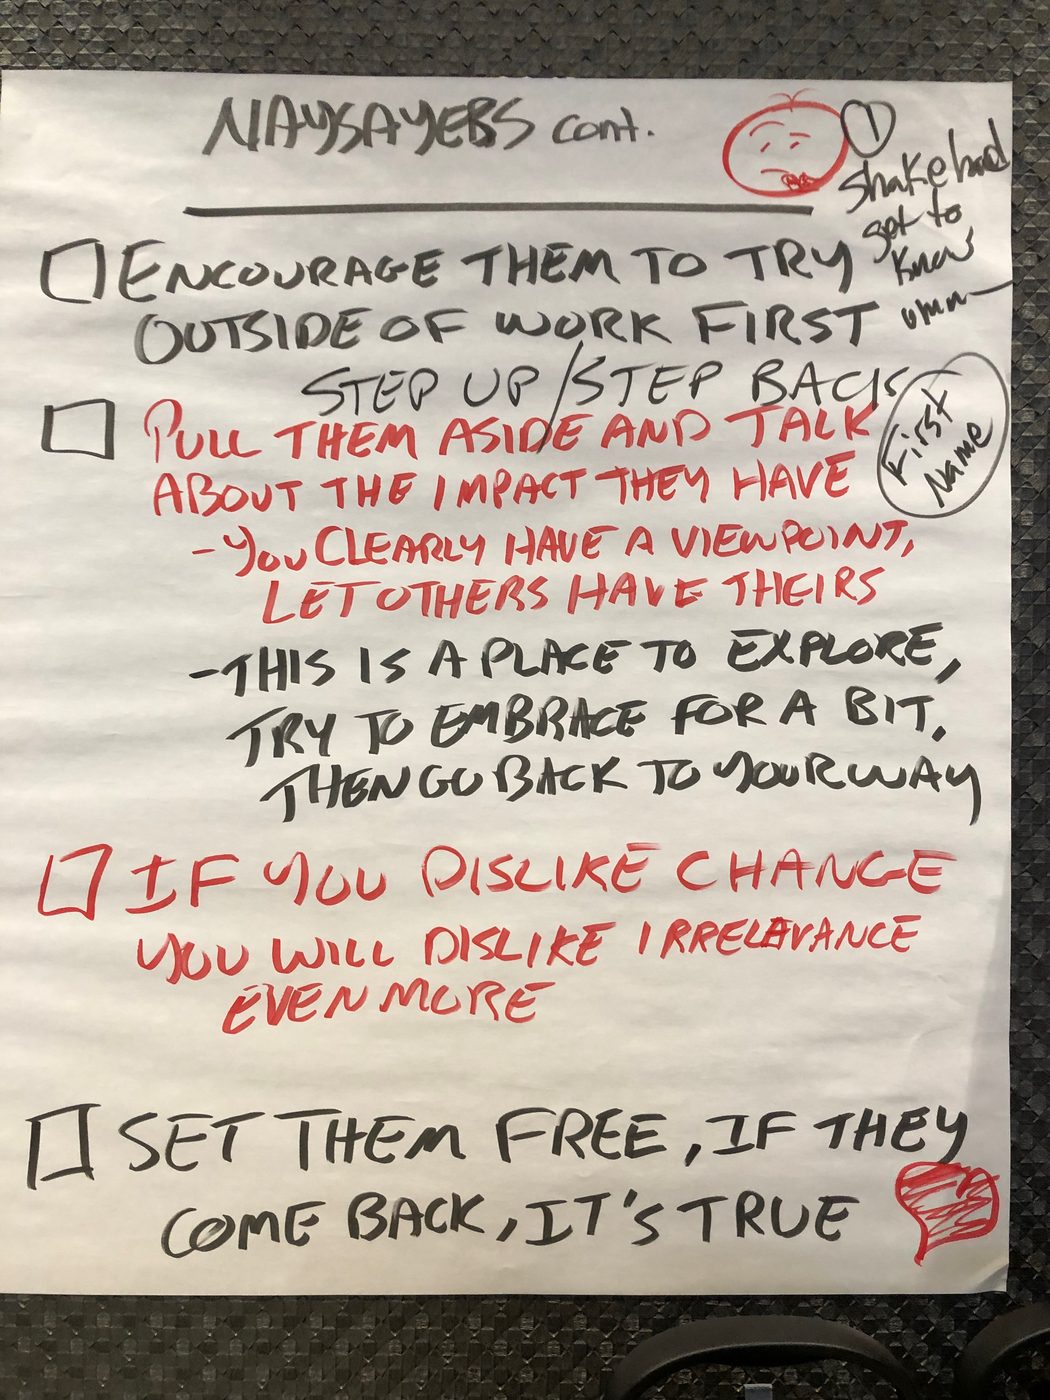 NAYSAYERS cont.
①
Shake hand
get to
know
umm—
☐ ENCOURAGE THEM TO TRY
OUTSIDE OF WORK FIRST
STEP UP/STEP BACK
First
Name
☐ PULL THEM ASIDE AND TALK
ABOUT THE IMPACT THEY HAVE
-YOU CLEARLY HAVE A VIEWPOINT,
LET OTHERS HAVE THEIRS
-THIS IS A PLACE TO EXPLORE,
TRY TO EMBRACE FOR A BIT.
THEN GO BACK TO YOUR WAY
☐ IF YOU DISLIKE CHANGE
YOU WILL DISLIKE IRRELAVANCE
EVEN MORE
☐ SET THEM FREE, IF THEY
COME BACK, IT'S TRUE